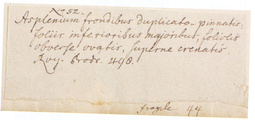 N. 52.
Asplenium frondibus duplicato-pinnatis,
foliis inferioribus majoribus, foliolis
obverse ovatis, superne crenatis.
Roy. Prodr. 498.
fragile 44